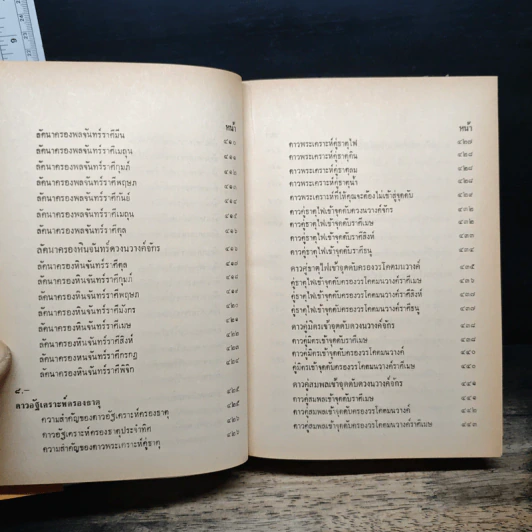 หน้า
ลัคนาครองพลจันทร์ราศีมีน ๔๑๐
ลัคนาครองพลจันทร์ราศีเมถุน ๔๑๑
ลัคนาครองพลจันทร์ราศีกุมภ์
ลัคนาครองพลจันทร์ราศีพฤษภ
ลัคนาครองพลจันทร์ราศีกันย์
ลัคนาครองพลจันทร์ราศีเมถุน
ลัคนาครองพลจันทร์ราศีกุล
ลัคนาครองหินจันทร์ดวงนวางค์จักร
ลัคนาครองหินจันทร์ราศีตุล
ลัคนาครองหินจันทร์ราศีกุมภ์
ลัคนาครองหินจันทร์ราศีพฤษภ
ลัคนาครองหินจันทร์ราศีมังกร
ลัคนาครองหินจันทร์ราศีเมษ
ลัคนาครองหินจันทร์ราศีสิงห์
ลัคนาครองหินจันทร์ราศีกรกฎ
ลัคนาครองหินจันทร์ราศีพิจิก ๔๒๔
๘.–
ดาวอัฐเคราะห์ครองธาตุ ๔๒๕
ความสำคัญของดาวอัฐเคราะห์ครองธาตุ ๔๒๕
ดาวอัฐเคราะห์ครองธาตุประจำทิศ ๔๒๖
ความสำคัญของดาวพระเคราะห์คู่ธาตุ ๔๒๖
หน้า
ดาวพระเคราะห์คู่ธาตุไฟ ๔๒๗
ดาวพระเคราะห์คู่ธาตุดิน ๔๒๘
ดาวพระเคราะห์คู่ธาตุลม ๔๒๘
ดาวพระเคราะห์คู่ธาตุน้ำ ๔๒๘
ดาวพระเคราะห์ที่ให้คุณจะต้องไม่เข้าสู่จุดดับ ๔๒๙
ดาวคู่ธาตุไฟเข้าจุดดับดวงนวางค์จักร ๔๓๒
ดาวคู่ธาตุไฟเข้าจุดดับราศีเมษ ๔๓๒
ดาวคู่ธาตุไฟเข้าจุดดับราศีสิงห์ ๔๓๓
ดาวคู่ธาตุไฟเข้าจุดดับราศีธนู ๔๓๔
ดาวคู่ธาตุไฟเข้าจุดดับครองวรโคตมนวางค์ ๔๓๕
คู่ธาตุไฟเข้าจุดดับครองวรโคตมนวางค์ราศีเมษ ๔๓๖
คู่ธาตุไฟเข้าจุดดับครองวรโคตมนวางค์ราศีสิงห์ ๔๓๗
คู่ธาตุไฟเข้าจุดดับครองวรโคตมนวางค์ราศีธนู ๔๓๗
ดาวคู่มิตรเข้าจุดดับดวงนวางค์จักร ๔๓๘
ดาวคู่มิตรเข้าจุดดับราศีเมษ ๔๓๘
ดาวคู่มิตรเข้าจุดดับครองวรโคตมนวางค์ ๔๔๐
คู่มิตรเข้าจุดดับครองวรโคตมนวางค์ราศีเมษ ๔๔๐
ดาวคู่สมพลเข้าจุดดับดวงนวางค์จักร ๔๔๑
ดาวคู่สมพลเข้าจุดดับราศีเมษ ๔๔๑
ดาวคู่สมพลเข้าจุดดับครองวรโคตมนวางค์ ๔๔๓
ดาวคู่สมพลเข้าจุดดับครองวรโคตมนวางค์ราศีเมษ ๔๔๓